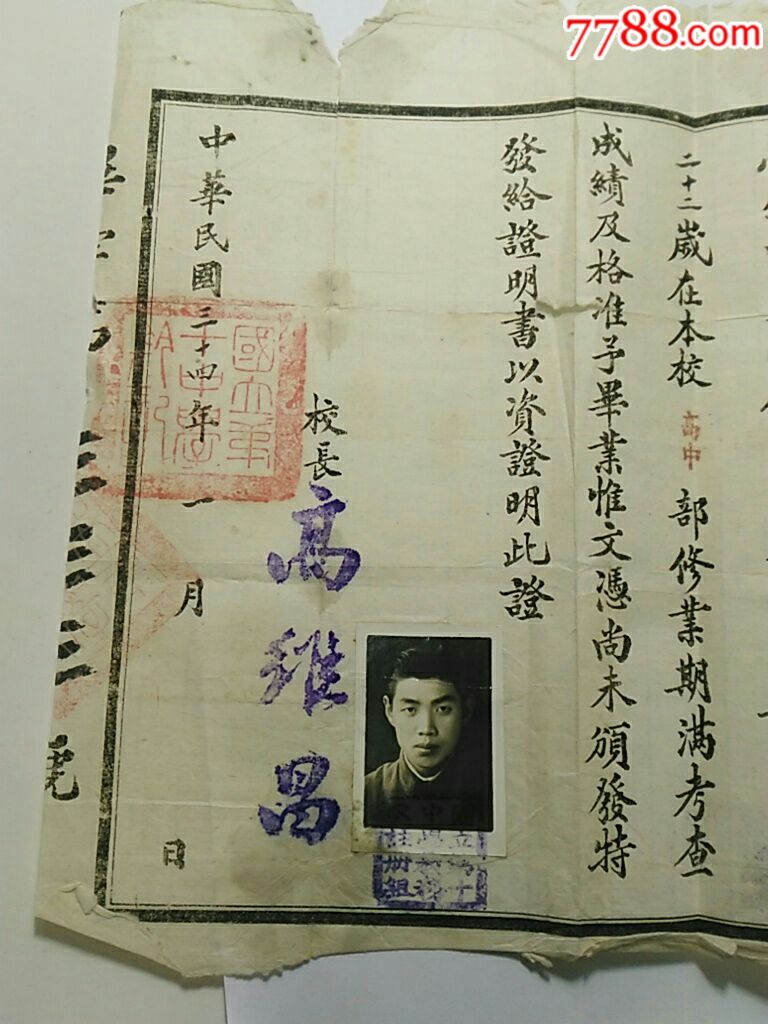 7788.com
二十二歲在本校高中部修業期滿考查
成績及格准予畢業惟文憑尚未頒發特
發給證明書以資證明此證
校長高維昌
中華民國三十四年一月 日
國立第
十中學
註册組
三三三號